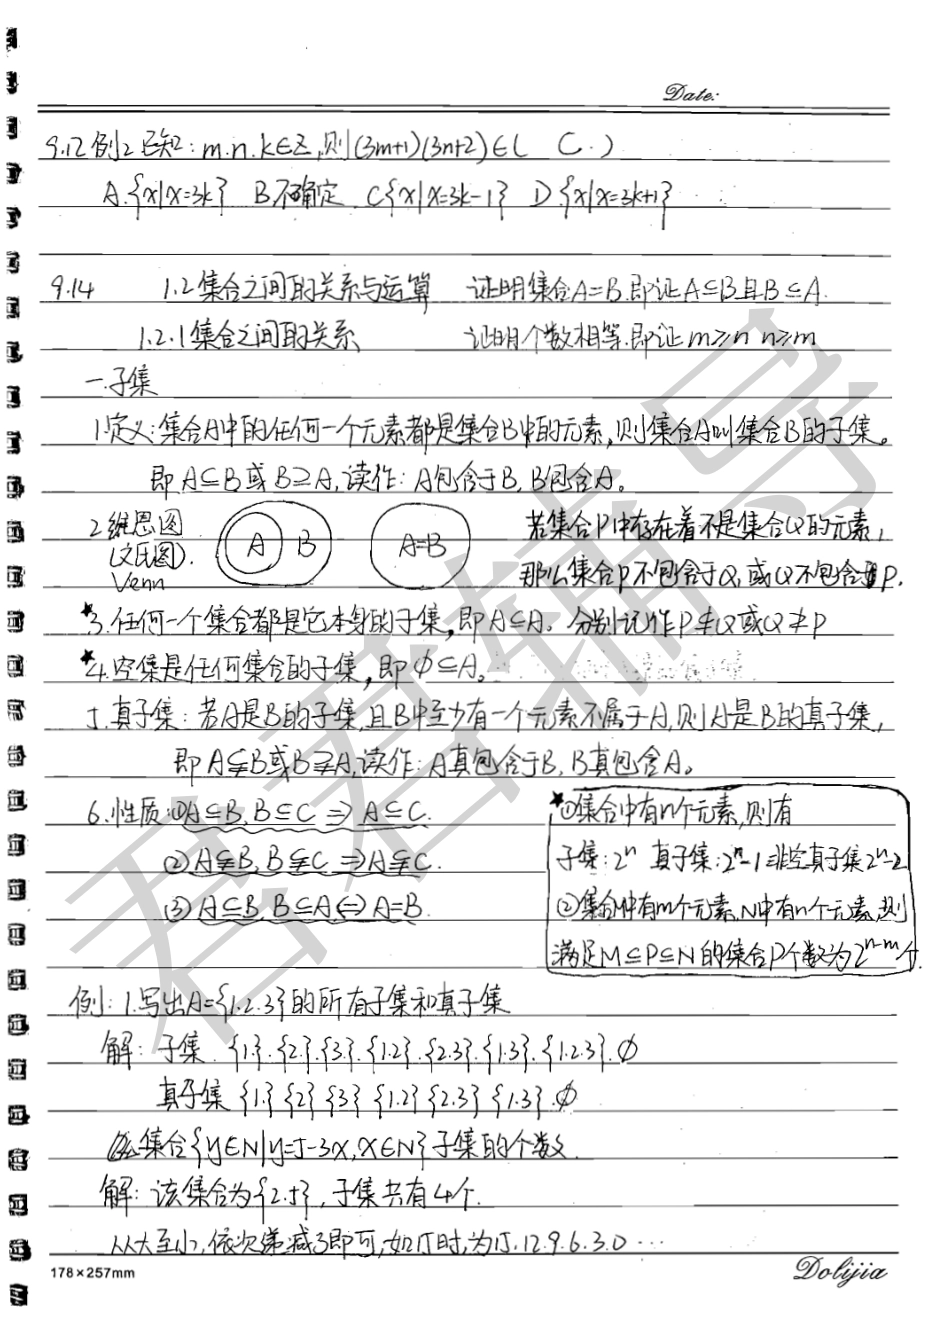 Date:
9.12 例2.已知:m.n.k∈Z,则(3m+1)(3n+2)∈( C.)
A.{x|x=3k} B.不确定 C{x|x=3k-1} D.{x|x=3k+1}
9.14 1.2集合之间的关系与运算 证明集合A=B.即证A⊆B且B⊆A.
1.2.1集合之间的关系 证明个数相等.即证m≥n n≥m
一.子集
1.定义:集合A中的任何一个元素都是集合B中的元素,则集合A叫集合B的子集。
即A⊆B或B⊇A,读作:A包含于B,B包含A。
2.维恩图
(文氏图).
Venn
A B
A=B
若集合P中存在着不是集合Q的元素,
那么集合P不包含于Q,或Q不包含P.
分别记作P⊈Q或Q⊉P
★3.任何一个集合都是它本身的子集,即A⊆A。
★4.空集是任何集合的子集,即∅⊆A。
5.真子集:若A是B的子集,且B中至少有一个元素不属于A,则A是B的真子集,
即A⫋B或B⫌A,读作:A真包含于B,B真包含A。
6.性质:①A⊆B,B⊆C⇒A⊆C.
②A⫋B,B⫋C⇒A⫋C.
③A⊆B,B⊆A⇔A=B.
★①集合中有n个元素,则有
子集:2ⁿ 真子集:2ⁿ-1 非空真子集2ⁿ-2
②集合M中有m个元素,N中有n个元素,则
满足M⊆P⊆N的集合P个数为2ⁿ⁻ᵐ个.
例:1.写出A={1.2.3}的所有子集和真子集
解:子集.{1}.{2}.{3}.{1.2}.{2.3}.{1.3}.{1.2.3}.∅
真子集{1}{2}{3}{1.2}{2.3}{1.3}.∅
2.集合{y∈N|y=5-3x,x∈N}子集的个数.
解:该集合为{2.5},子集共有4个.
从大至小,依次递减3即可,如15时,为15.12.9.6.3.0…
178×257mm
Dolijia
君君辅导